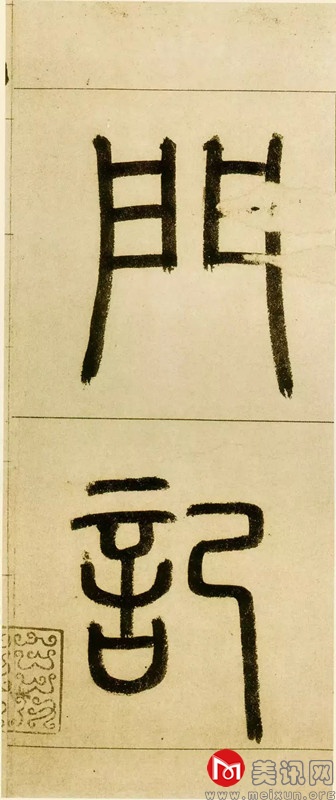 門
記
美讯网
www.meixun.org